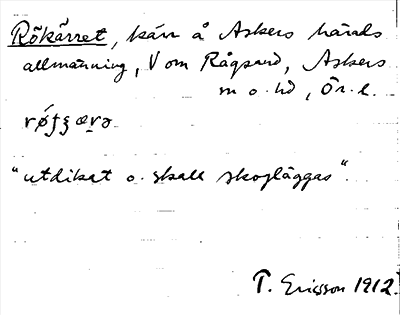 Rökärret, kärr å Askers härads
allmänning, V om Rågsand, Askers
m o. hd, Ör. l.
"utdikat o. skall skogläggas".
T. Ericsson 1912.